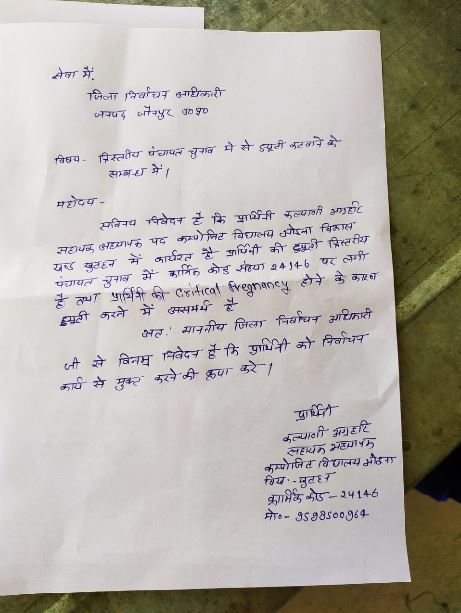 सेवा में,
जिला निर्वाचन अधिकारी
जनपद जौनपुर उ०प्र०
विषय - त्रिस्तरीय पंचायत चुनाव में से ड्यूटी कटवाने के
सम्बन्ध में।
महोदय-
सविनय निवेदन है कि प्रार्थिनी कल्याणी अग्रहरि
सहायक अध्यापक पद कम्पोजिट विद्यालय विकास
खण्ड खुटहन में कार्यरत है प्रार्थिनी की ड्यूटी त्रिस्तरीय
पंचायत चुनाव में कार्मिक कोड संख्या 24146 पर लगी
है तथा प्रार्थिनी की Critical Pregnancy होने के कारण
ड्यूटी करने में असमर्थ है
अतः माननीय जिला निर्वाचन अधिकारी
जी से विनम्र निवेदन है कि प्रार्थिनी को निर्वाचन
कार्य से मुक्त करने की कृपा करे।
प्रार्थिनी
कल्याणी अग्रहरि
सहायक अध्यापक
कम्पोजिट विद्यालय
खुटहन
कार्मिक कोड - 24146
मो०- 9598500964